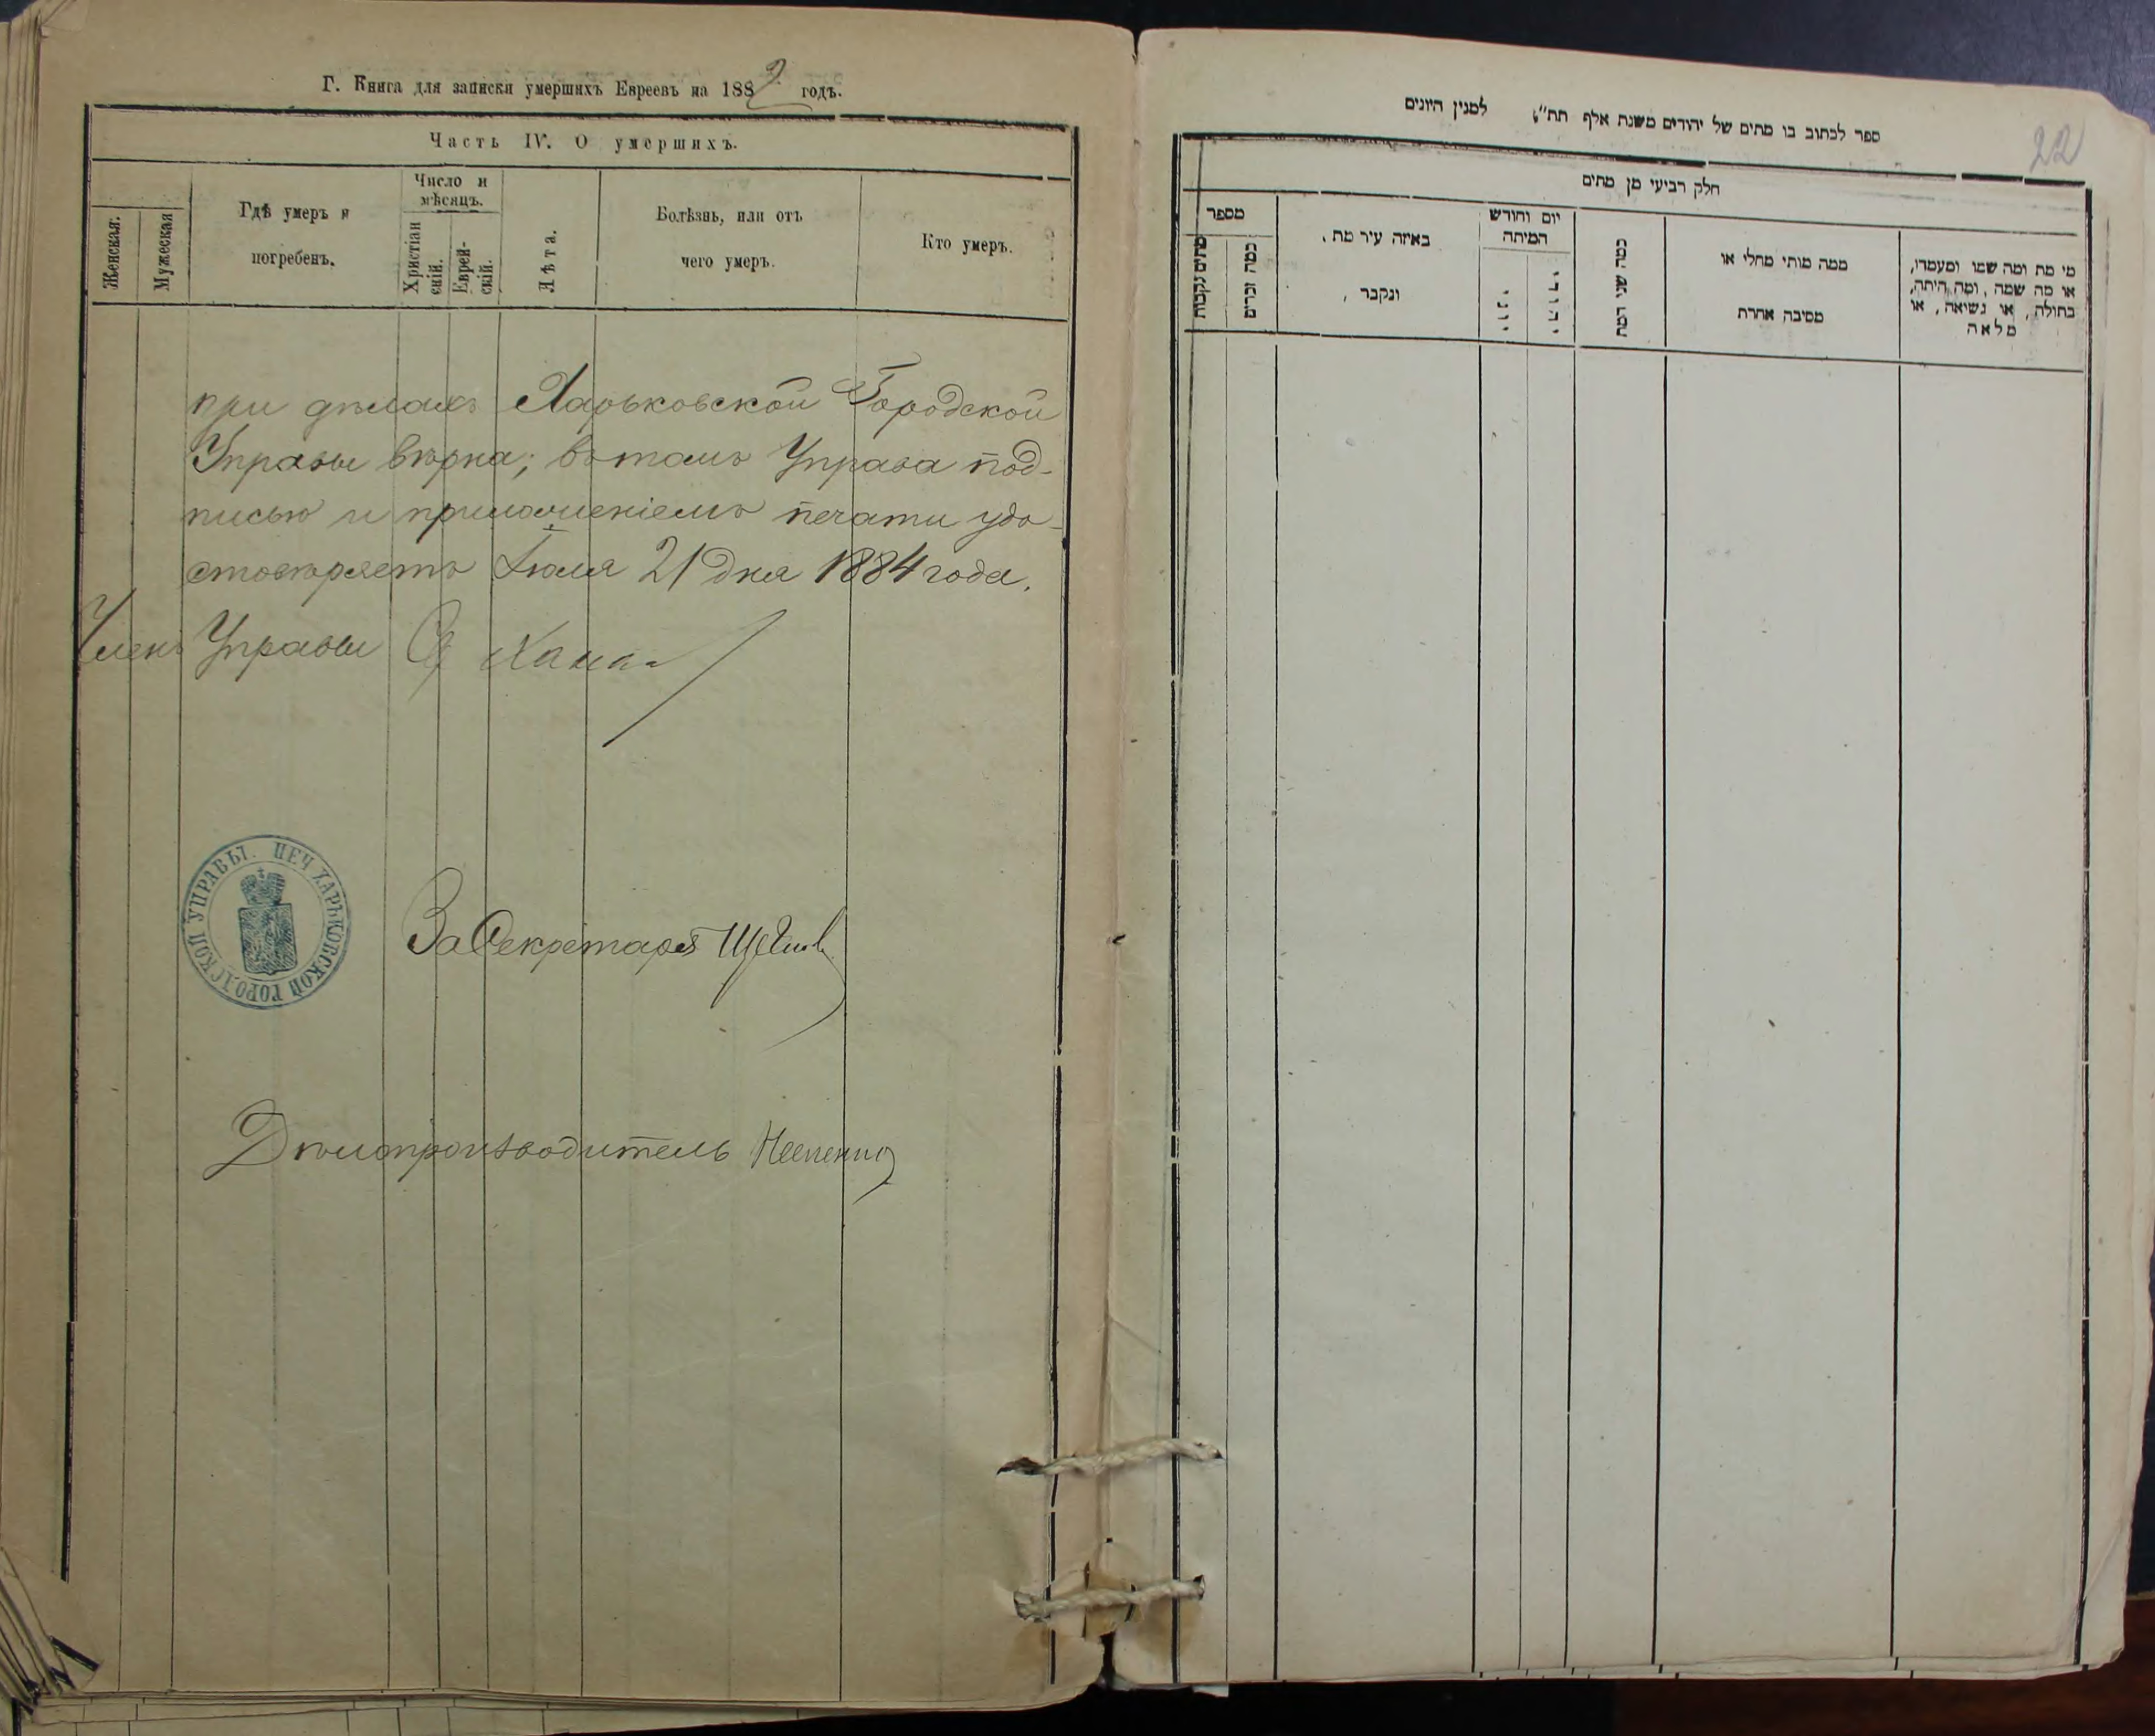 Г. Книга для записки умершихъ Евреевъ на 1882 годъ.
Часть IV. О умершихъ.
Женская.
Мужеская
Гдѣ умеръ и
погребенъ.
Число и
мѣсяцъ.
Христіан
скій.
Еврей-
скій.
Лѣта.
Болѣзнь, или отъ
чего умеръ.
Кто умеръ.
при дѣлахъ Харьковской Городской
Управы вѣрна; въ томъ Управа под-
писью и приложеніемъ печати удо-
стовѣряетъ Іюля 21 дня 1884 года.
Членъ Управы
ПЕЧ. ХАРЬКОВСКОЙ ГОРОДСКОЙ УПРАВЫ.
За Секретаря
Дѣлопроизводитель
ספר לכתוב בו מתים של יהודים משנת אלף תת״ למנין היונים
22
חלק רביעי מן מתים
מספר
מתים נקבות
כמה זכרים
באיזה עיר מת,
ונקבר,
יום וחודש
המיתה
יוני
יהודי
כמה שני המת
ממה מותי מחלי או
מסיבה אחרת
מי מת ומה שמו ומעמדו,
או מה שמה, ומה היתה,
בתולה, או נשיאה, או
מלאה